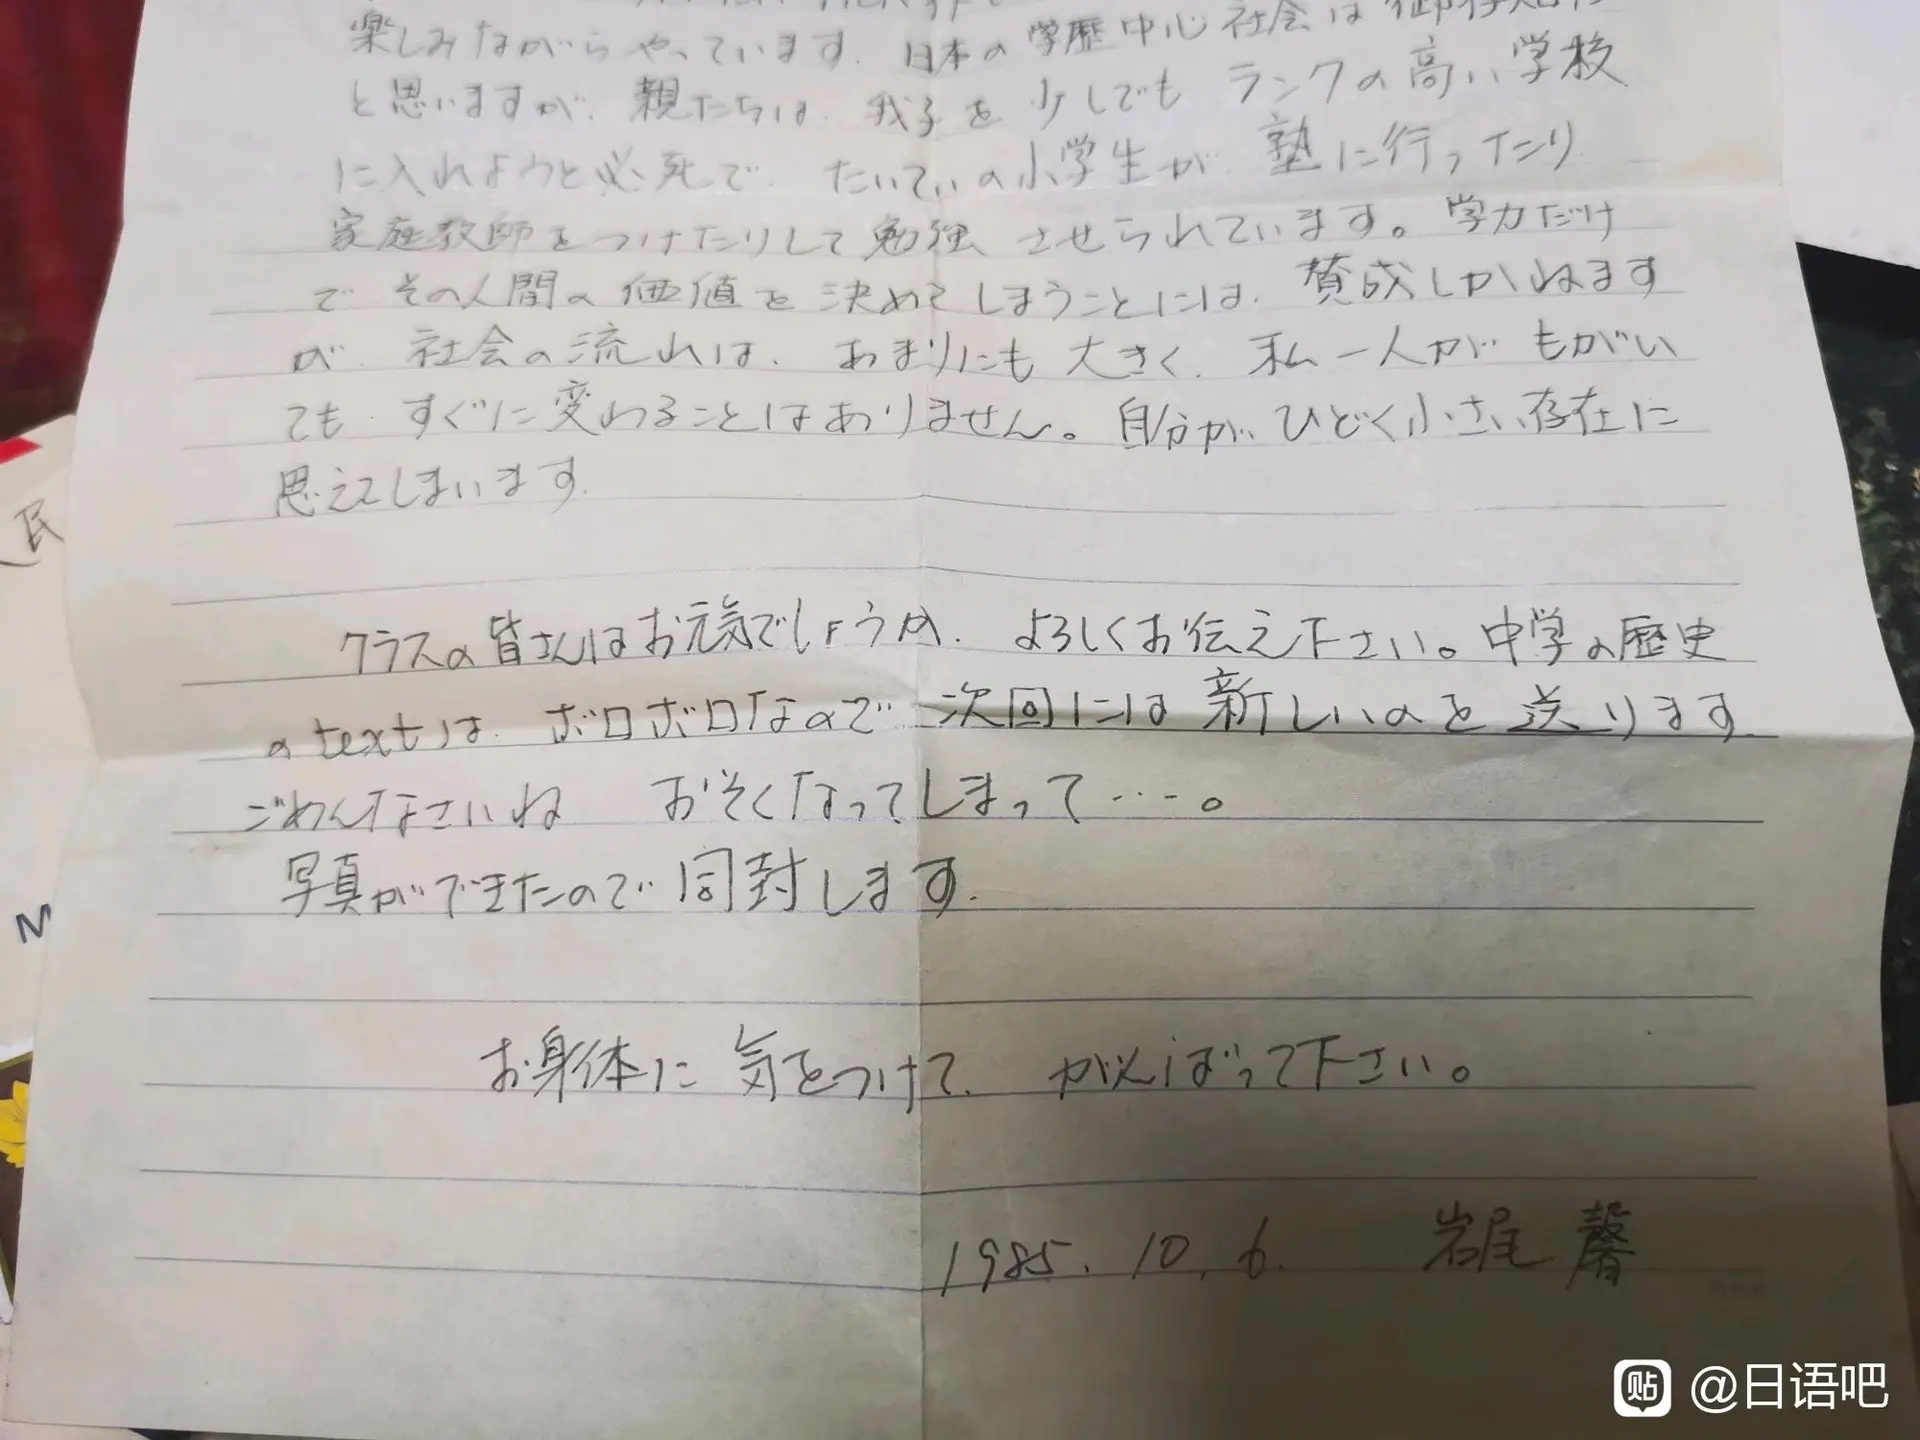 楽しみながらやっています。日本の学歴中心社会は御存知だ
と思いますが、親たちは、我子を少しでもランクの高い学校
に入れようと必死で、たいていの小学生が、塾に行ったり
家庭教師をつけたりして勉強させられています。学力だけ
でその人間の価値を決めてしまうことには、賛成しかねます
が、社会の流れは、あまりにも大きく、私一人がもがい
ても、すぐに変わることはありません。自分がひどく小さい存在に
思えてしまいます。
クラスの皆さんはお元気でしょうか。よろしくお伝え下さい。中学の歴史
のtextは、ボロボロなので次回には新しいのを送ります。
ごめんなさいね おそくなってしまって…。
写真ができたので同封します。
お身体に気をつけて、がんばって下さい。
1985.10.6. 岩尾 馨
民
M
贴 @日语吧